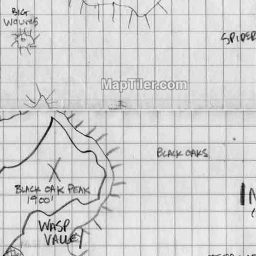 BIG
WOLVES
SPIDER
MapTiler.com
BLACK OAKS
BLACK OAK PEAK
1900'
WASP
VALLEY
IN